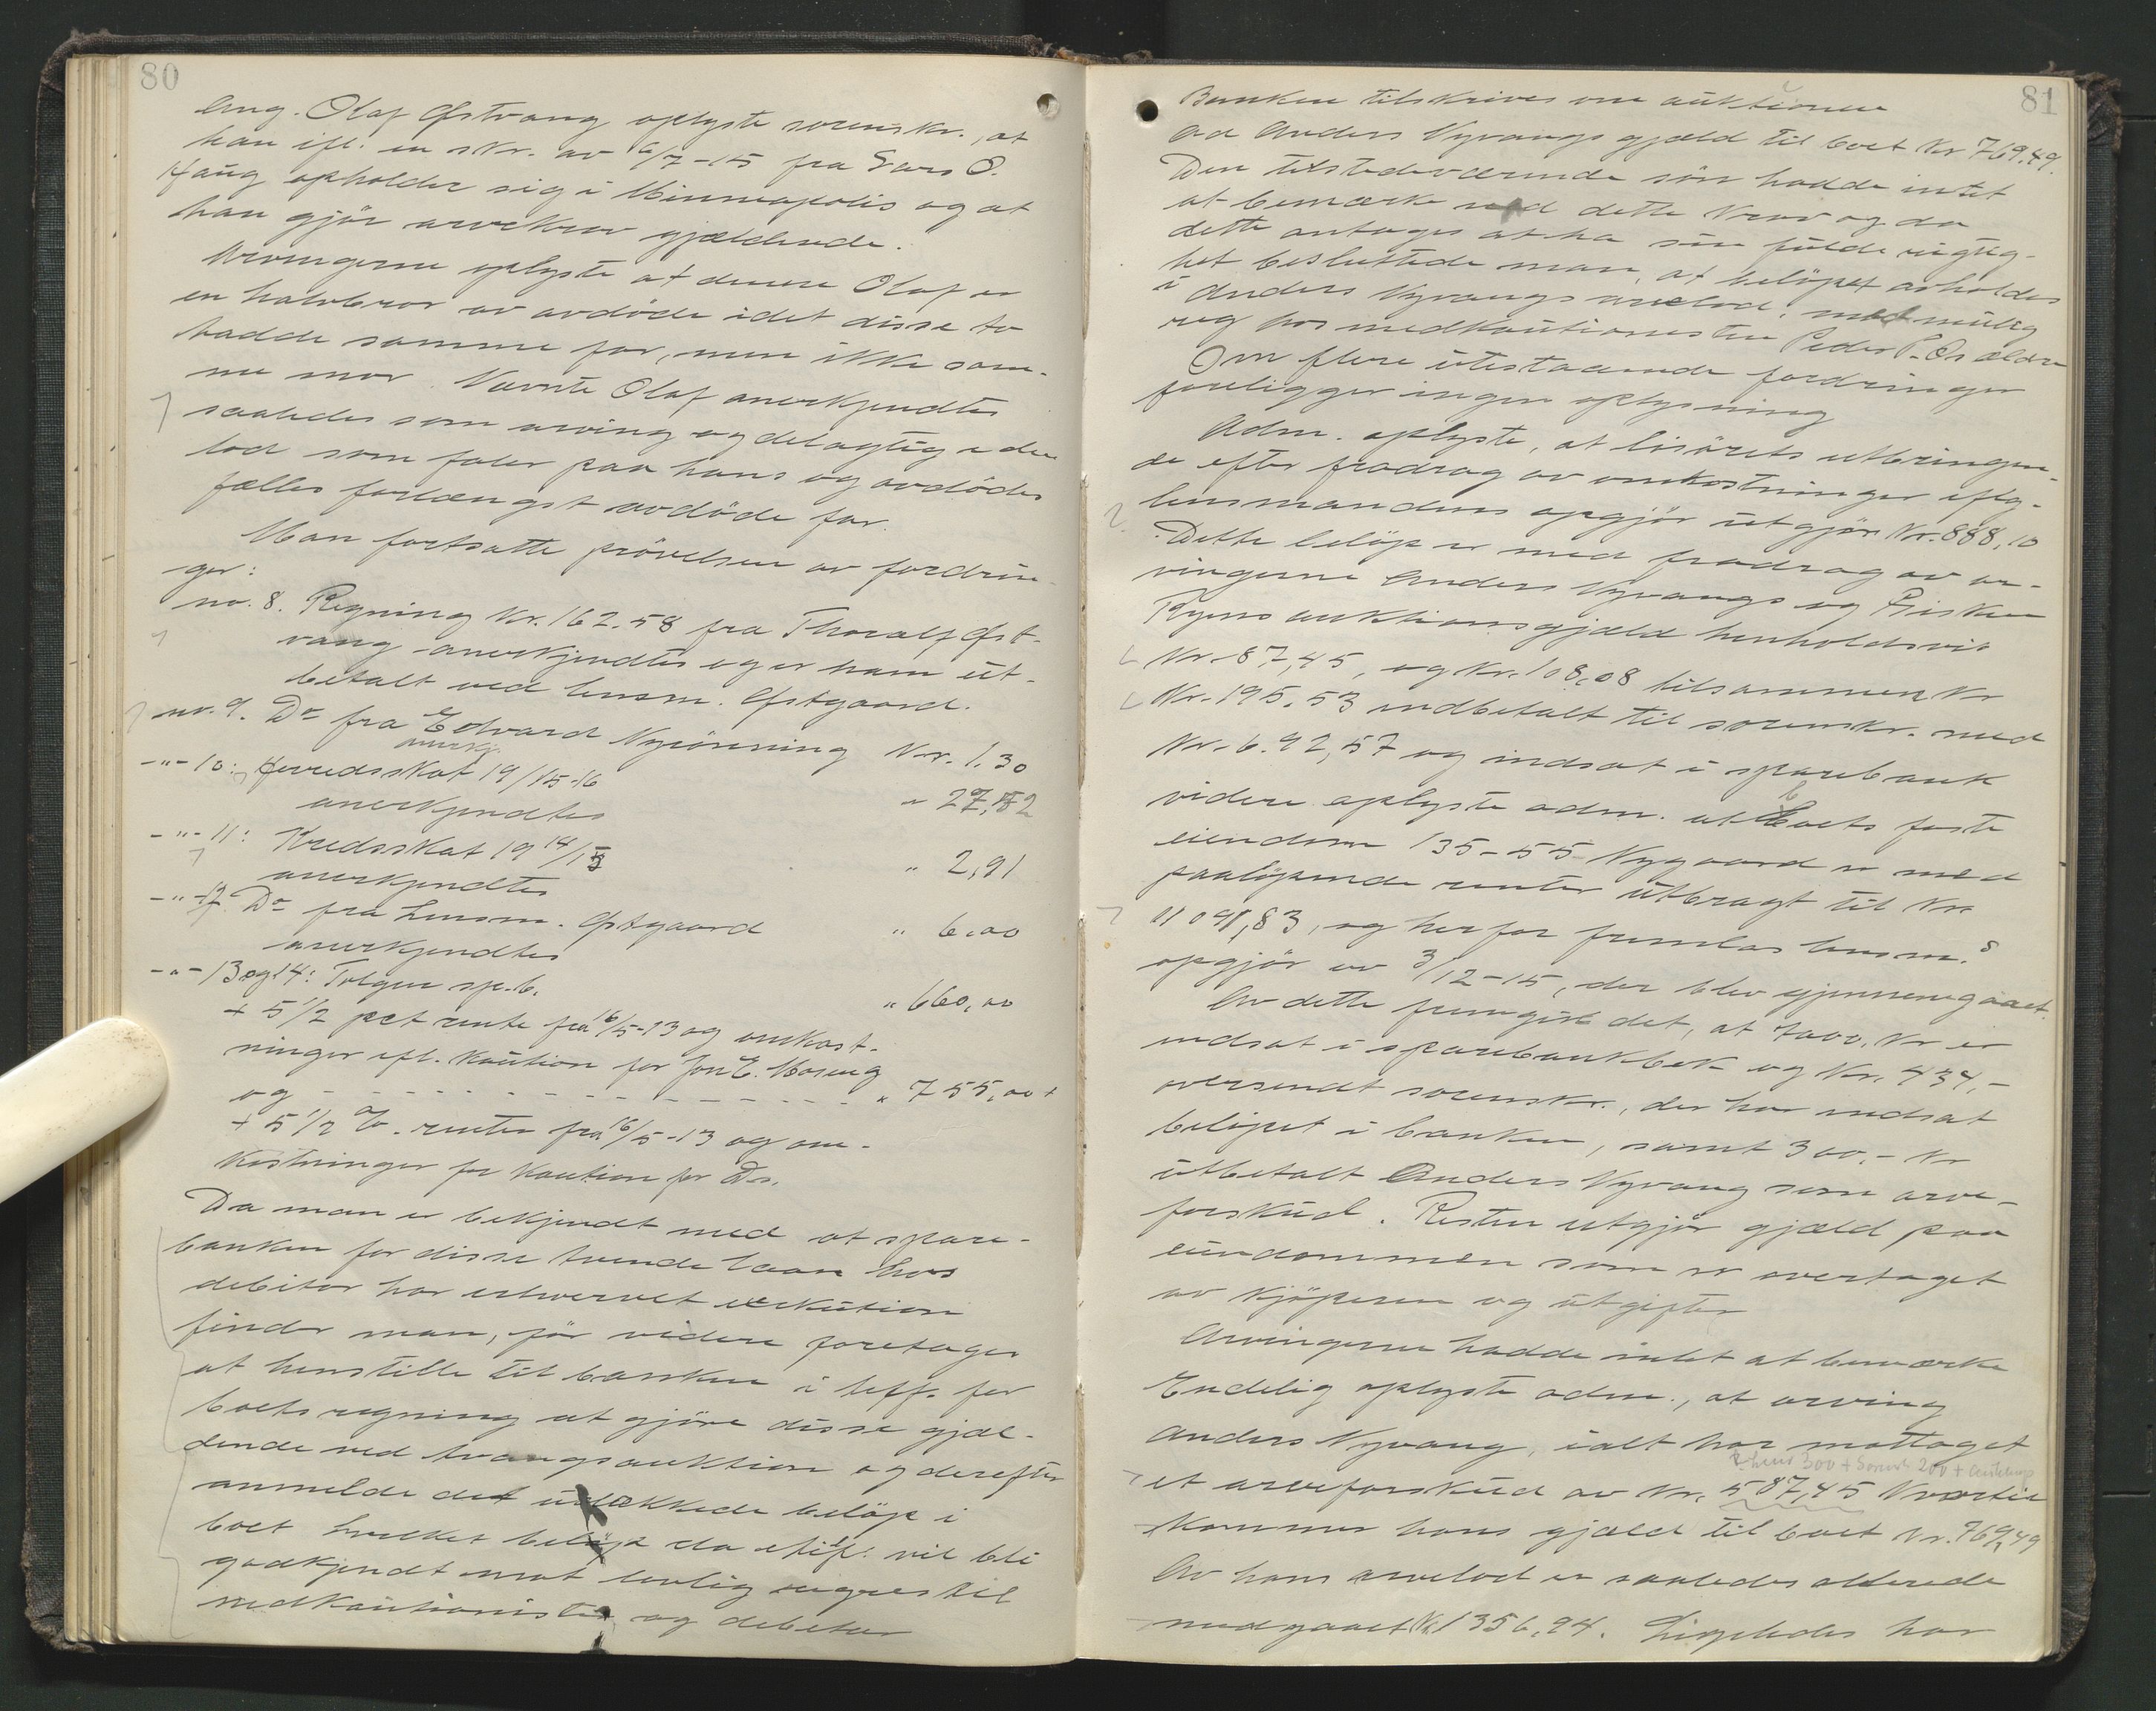 80
Ang. Olaf Østvang oplyste sorenskr., at
han ifl. en skr. av 6/7-15 fra Lars O.
Haug opholder sig i Minneapolis og at
han gjør arvekrav gjældende.
Arvingerne oplyste at denne Olaf er
en halvbror av avdøde idet disse to
hadde samme far, men ikke sam-
me mor. Nævnte Olaf anerkjendtes
saaledes som arving og delagtig i den
lod som faler paa hans og avdødes
fælles forlængst avdøde far.
Man fortsatte prøvelsen av fordrin-
ger:
no. 8. Regning Kr. 162.58 fra Thoralf Øst-
vang anerkjendtes og er ham ut-
betalt ved lensm. Østgaard.
no. 9. Do fra Edvard Nyrønning Kr. 1.30
anerkj.
-"- 10: Herredsskat 19/15-16
anerkjendtes " 27,82
-"- 11: Kredsskat 19 14/15
anerkjendtes " 2,91
-"- 12 Do fra Lensm. Østgaard " 6,00
anerkjendtes
-"- 13 og 14: Tolgen sp.b. " 660,00
+ 5 1/2 pct rente fra 16/5-13 og omkost-
ninger efl. kaution for Jon E. Moseng
og - - - - - - - - - " 755,00 +
+ 5 1/2 % renter fra 16/5-13 og om-
kostninger for kaution for Do.
Da man er bekjendt med at spare-
banken for disse tvende laan hos
debitor har erhvervet exekution
finder man, før videre foretages
at henstille til banken i tilf. for
boets regning at gjøre disse gjæl-
dende ved tvangsauktion og derefter
anmelde det udækkede beløp i
boet hvilket beløp da vil bli
godkjendt mot lovlig regres til
medkautionister og debitor
81
Banken tilskrives om auktionen
Ad Anders Nyvangs gjæld til boet Kr 769,49.
Den tilstedeværende søn hadde intet
at bemærke ved dette krav og da
dette antages at ha sin fulde rigtig-
het besluttede man, at beløpet avholdes
i Anders Nyvangs arvelod, med mulig
reg hos medkautionisten Peder P.
Om flere utestaaende fordringer
foreligger ingen oplysning
Adm. oplyste, at løsørets utbringen-
de efter fradrag av omkostninger iflg.
lensmandens opgjør utgjør Kr. 888,10
Dette beløp er med fradrag av ar-
vingerne Anders Nyvangs og
Ryens auktionsgjæld henholdsvis
Kr. 87,45, og Kr. 108,08 tilsammen Kr
Kr. 195,53 indbetalt til sorenskr. med
Kr. 692,57 og indsat i sparebank
videre oplyste adm. at boets faste
eiendom 135-55 Nygaard er med
paaløpende renter utbragt til Kr.
11 091,83, og herfor fremlas lensm.s
opgjør av 3/12-15, der blev gjennemgaaet.
Av dette fremgik det, at 7000. Kr er
indsat i sparebankbok og Kr. 434,-
oversendt sorenskr., der har indsat
beløpet i banken, samt 300.- Kr
utbetalt Anders Nyvang som arve-
forskud. Resten utgjør gjæld paa
eiendommen som er overtaget
av kjøperen og utgifter
Arvingerne hadde intet at bemærke
Endelig oplyste adm., at arving
Anders Nyvang, ialt har mottaget
lens 300 + Sorensk. 200 +
et arveforskud av Kr. 587,45 hvortil
kommer hans gjæld til boet Kr. 769,49
Av hans arvelod er saaledes allerede
medgaaet Kr 1356,94. Ligeledes har